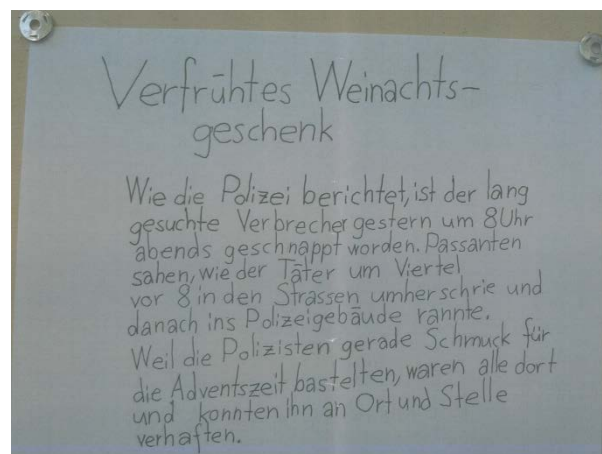 Verfrühtes Weinachts-
geschenk
Wie die Polizei berichtet, ist der lang
gesuchte Verbrecher gestern um 8 Uhr
abends geschnappt worden. Passanten
sahen, wie der Täter um Viertel
vor 8 in den Strassen umherschrie und
danach ins Polizeigebäude rannte.
Weil die Polizisten gerade Schmuck für
die Adventszeit bastelten, waren alle dort
und konnten ihn an Ort und Stelle
verhaften.